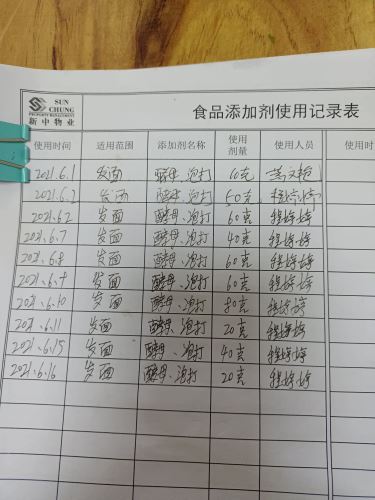 SUN
CHUNG
PROPERTY MANAGEMENT
新中物业
食品添加剂使用记录表
使用时间 适用范围 添加剂名称 使用剂量 使用人员 使用时
2021.6.1 发面 酵母、泡打
2021.6.2 发面 酵母、泡打 50克 程婷婷
2021.6.2 发面 酵母、泡打 60克 程婷婷
2021.6.7 发面 酵母、泡打 40克 程婷婷
2021.6.8 发面 酵母、泡打 60克 程婷婷
2021.6.9 发面 酵母、泡打 60克 程婷婷
2021.6.10 发面 酵母、泡打 80克 程婷婷
2021.6.11 发面 酵母、泡打 20克 程婷婷
2021.6.15 发面 酵母、泡打 40克 程婷婷
2021.6.16 发面 酵母、泡打 20克 程婷婷